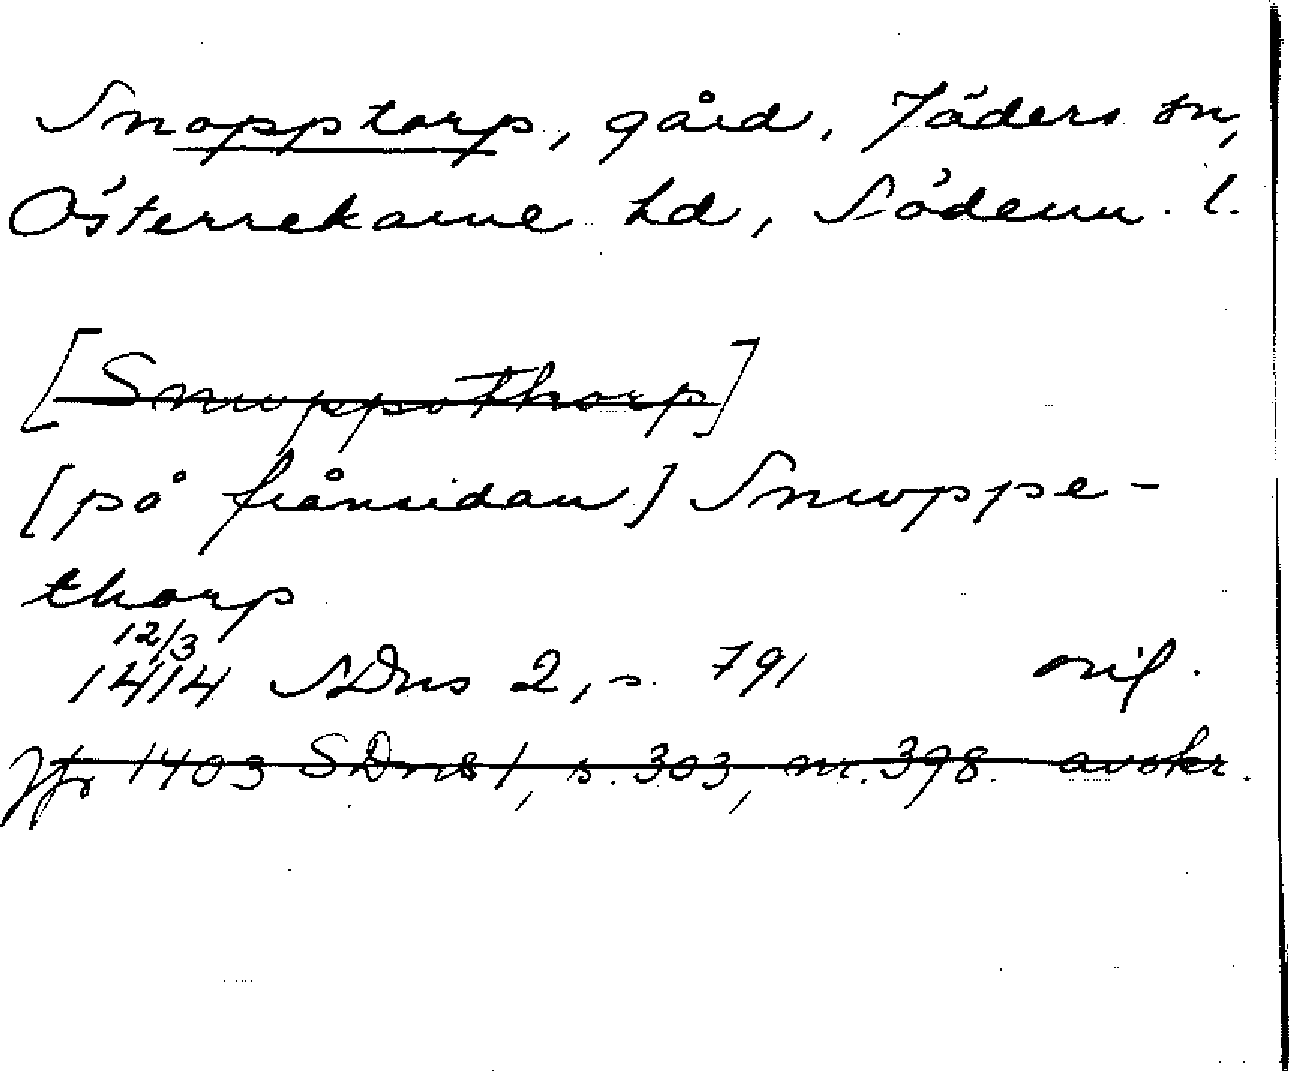 Snopptorp, gård, Jäders sn,
Österrekarne hd, Söderm. l.
[Snwppothorp]
[på frånsidan] Snwppe-
thorp
12/3
1414 SDns 2, s. 791 orig.
Jfr 1403 SDns 1, s. 303, nr. 398. avskr.